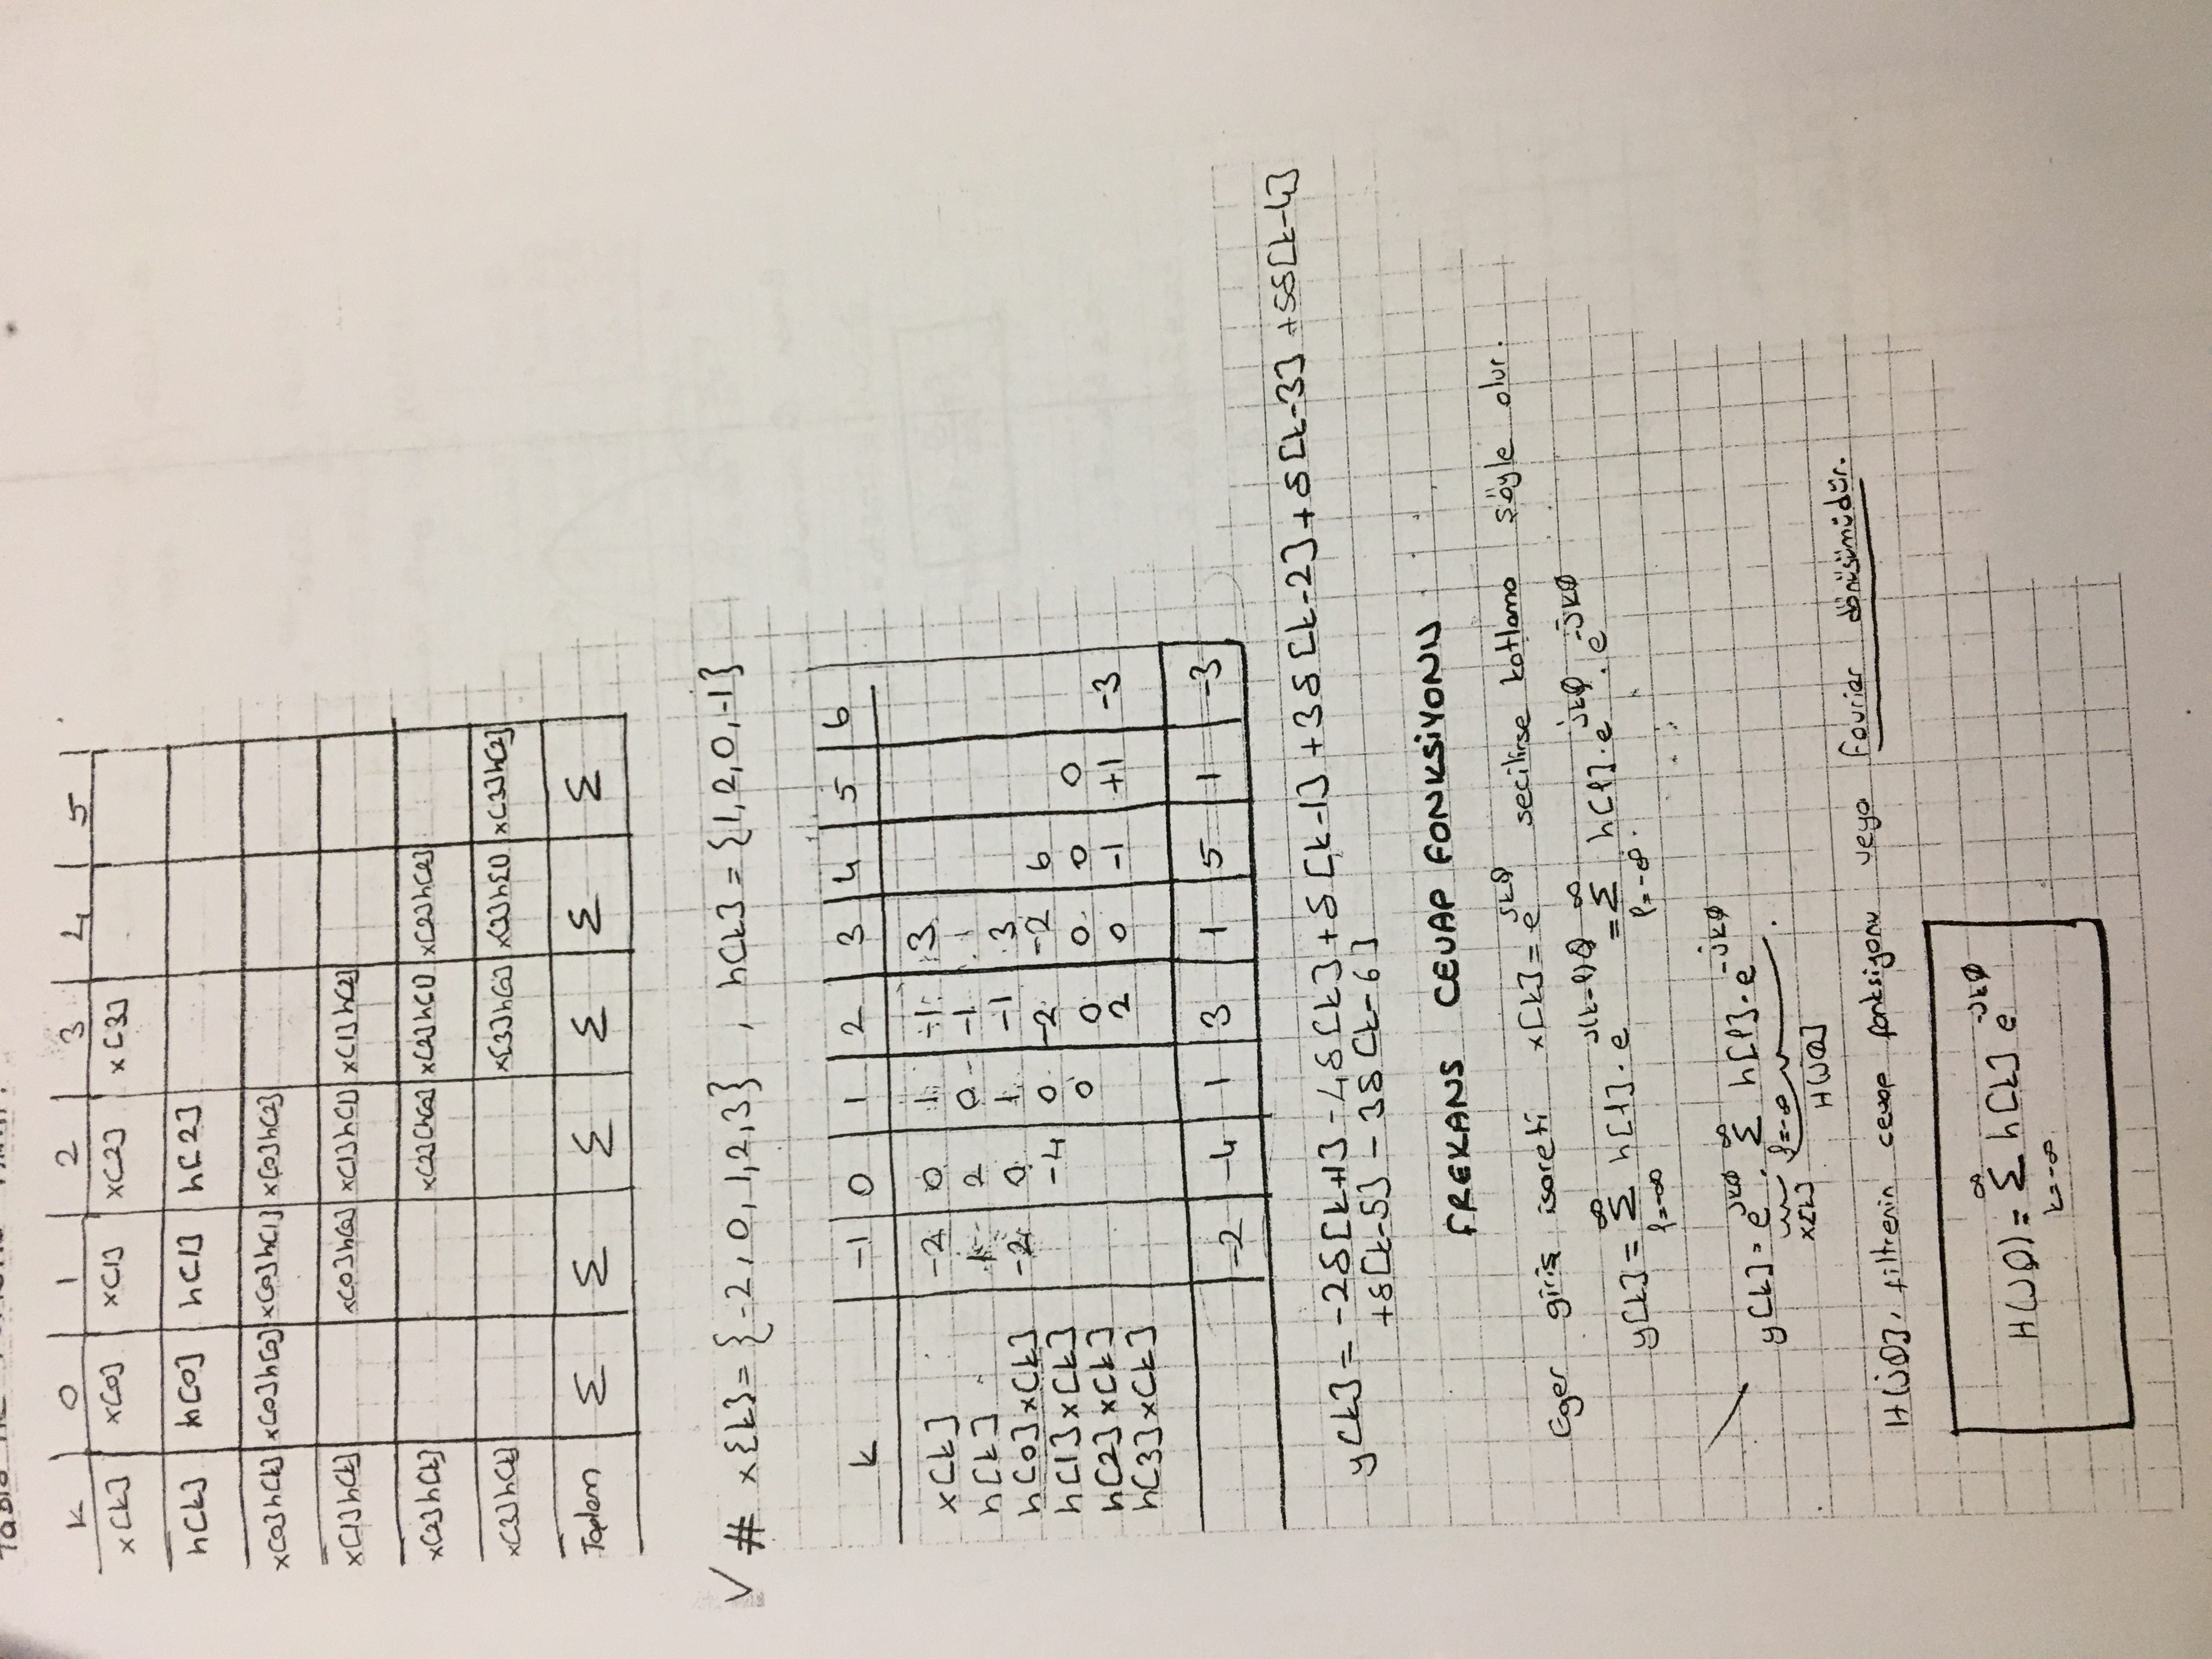 Tablo ile
k 0 1 2 3 4 5
x[k] x[0] x[1] x[2] x[3]
h[k] h[0] h[1] h[2]
x[0]h[k] x[0]h[0] x[0]h[1] x[0]h[2]
x[1]h[k] x[0]h[0] x[1]h[1] x[1]h[2]
x[2]h[k] x[2]h[0] x[2]h[1] x[2]h[2]
x[3]h[k] x[3]h[0] x[3]h[1] x[3]h[2]
Toplam Σ Σ Σ Σ Σ Σ
√ # x{k}= {-2, 0, 1, 2, 3} , h[k] = {1, 2, 0, -1}
k -1 0 1 2 3 4 5 6
x[k] -2 0 1 -1 3
h[k] 1 2 0 -1
h[0]x[k] -2 0 1 -1 3
h[1]x[k] -4 0 -2 -2 6
h[2]x[k] 0 0 0 0 0
h[3]x[k] 2 0 -1 +1 -3
-2 -4 1 3 1 5 1 -3
y[k] = -2δ[k+1] -4δ[k] + δ[k-1] +3δ[k-2] + δ[k-3] +5δ[k-4]
+δ[k-5] - 3δ[k-6]
FREKANS CEVAP FONKSİYONU
Eger giriş isareti x[k] = e^jkØ secilirse katlama şöyle olur.
y[k] = Σ_{l=-∞}^{∞} h[l]. e^j(k-l)Ø = Σ_{l=-∞}^{∞} h[l]. e^jkØ . e^-jkØ
y[k] = e^jkØ . Σ_{l=-∞}^{∞} h[l]. e^-jkØ
x[k] H(jØ]
H(jØ], filtrenin cevap fonksiyonu veya Fourier dönüsümüdür.
H(jØ) = Σ_{k=-∞}^{∞} h[k] e^-jkØ